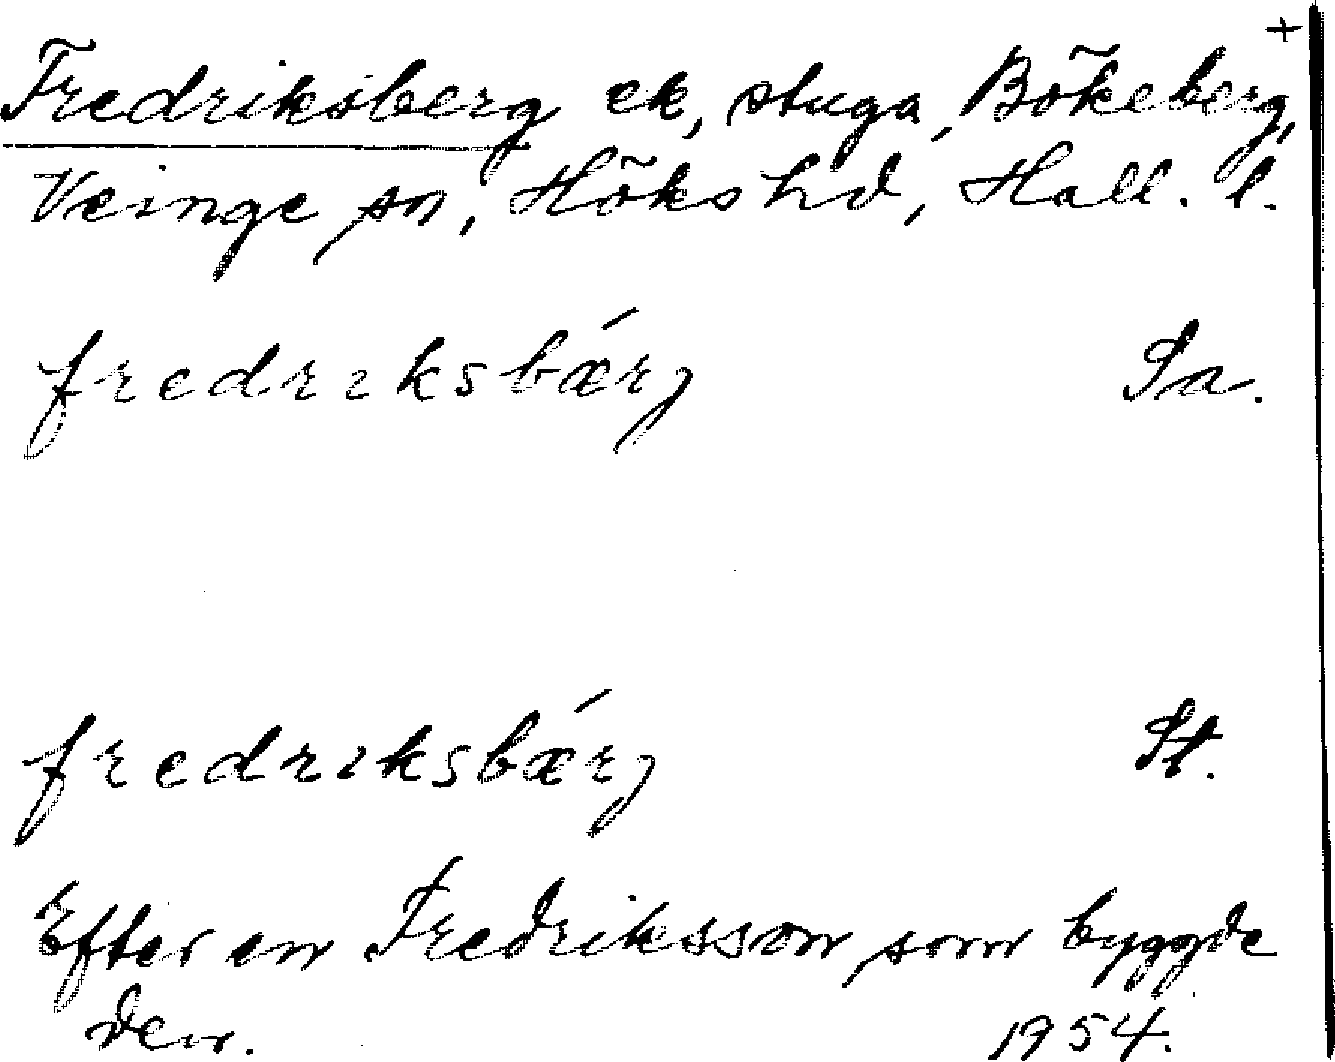 +
Fredriksberg ek, stuga, Bökeberg,
Veinge sn, Höks hd, Hall. l.
fredrıksbǽrj Sa.
fredrıksbǽrj St.
Efter en Fredriksson som byggde
den. 1954.